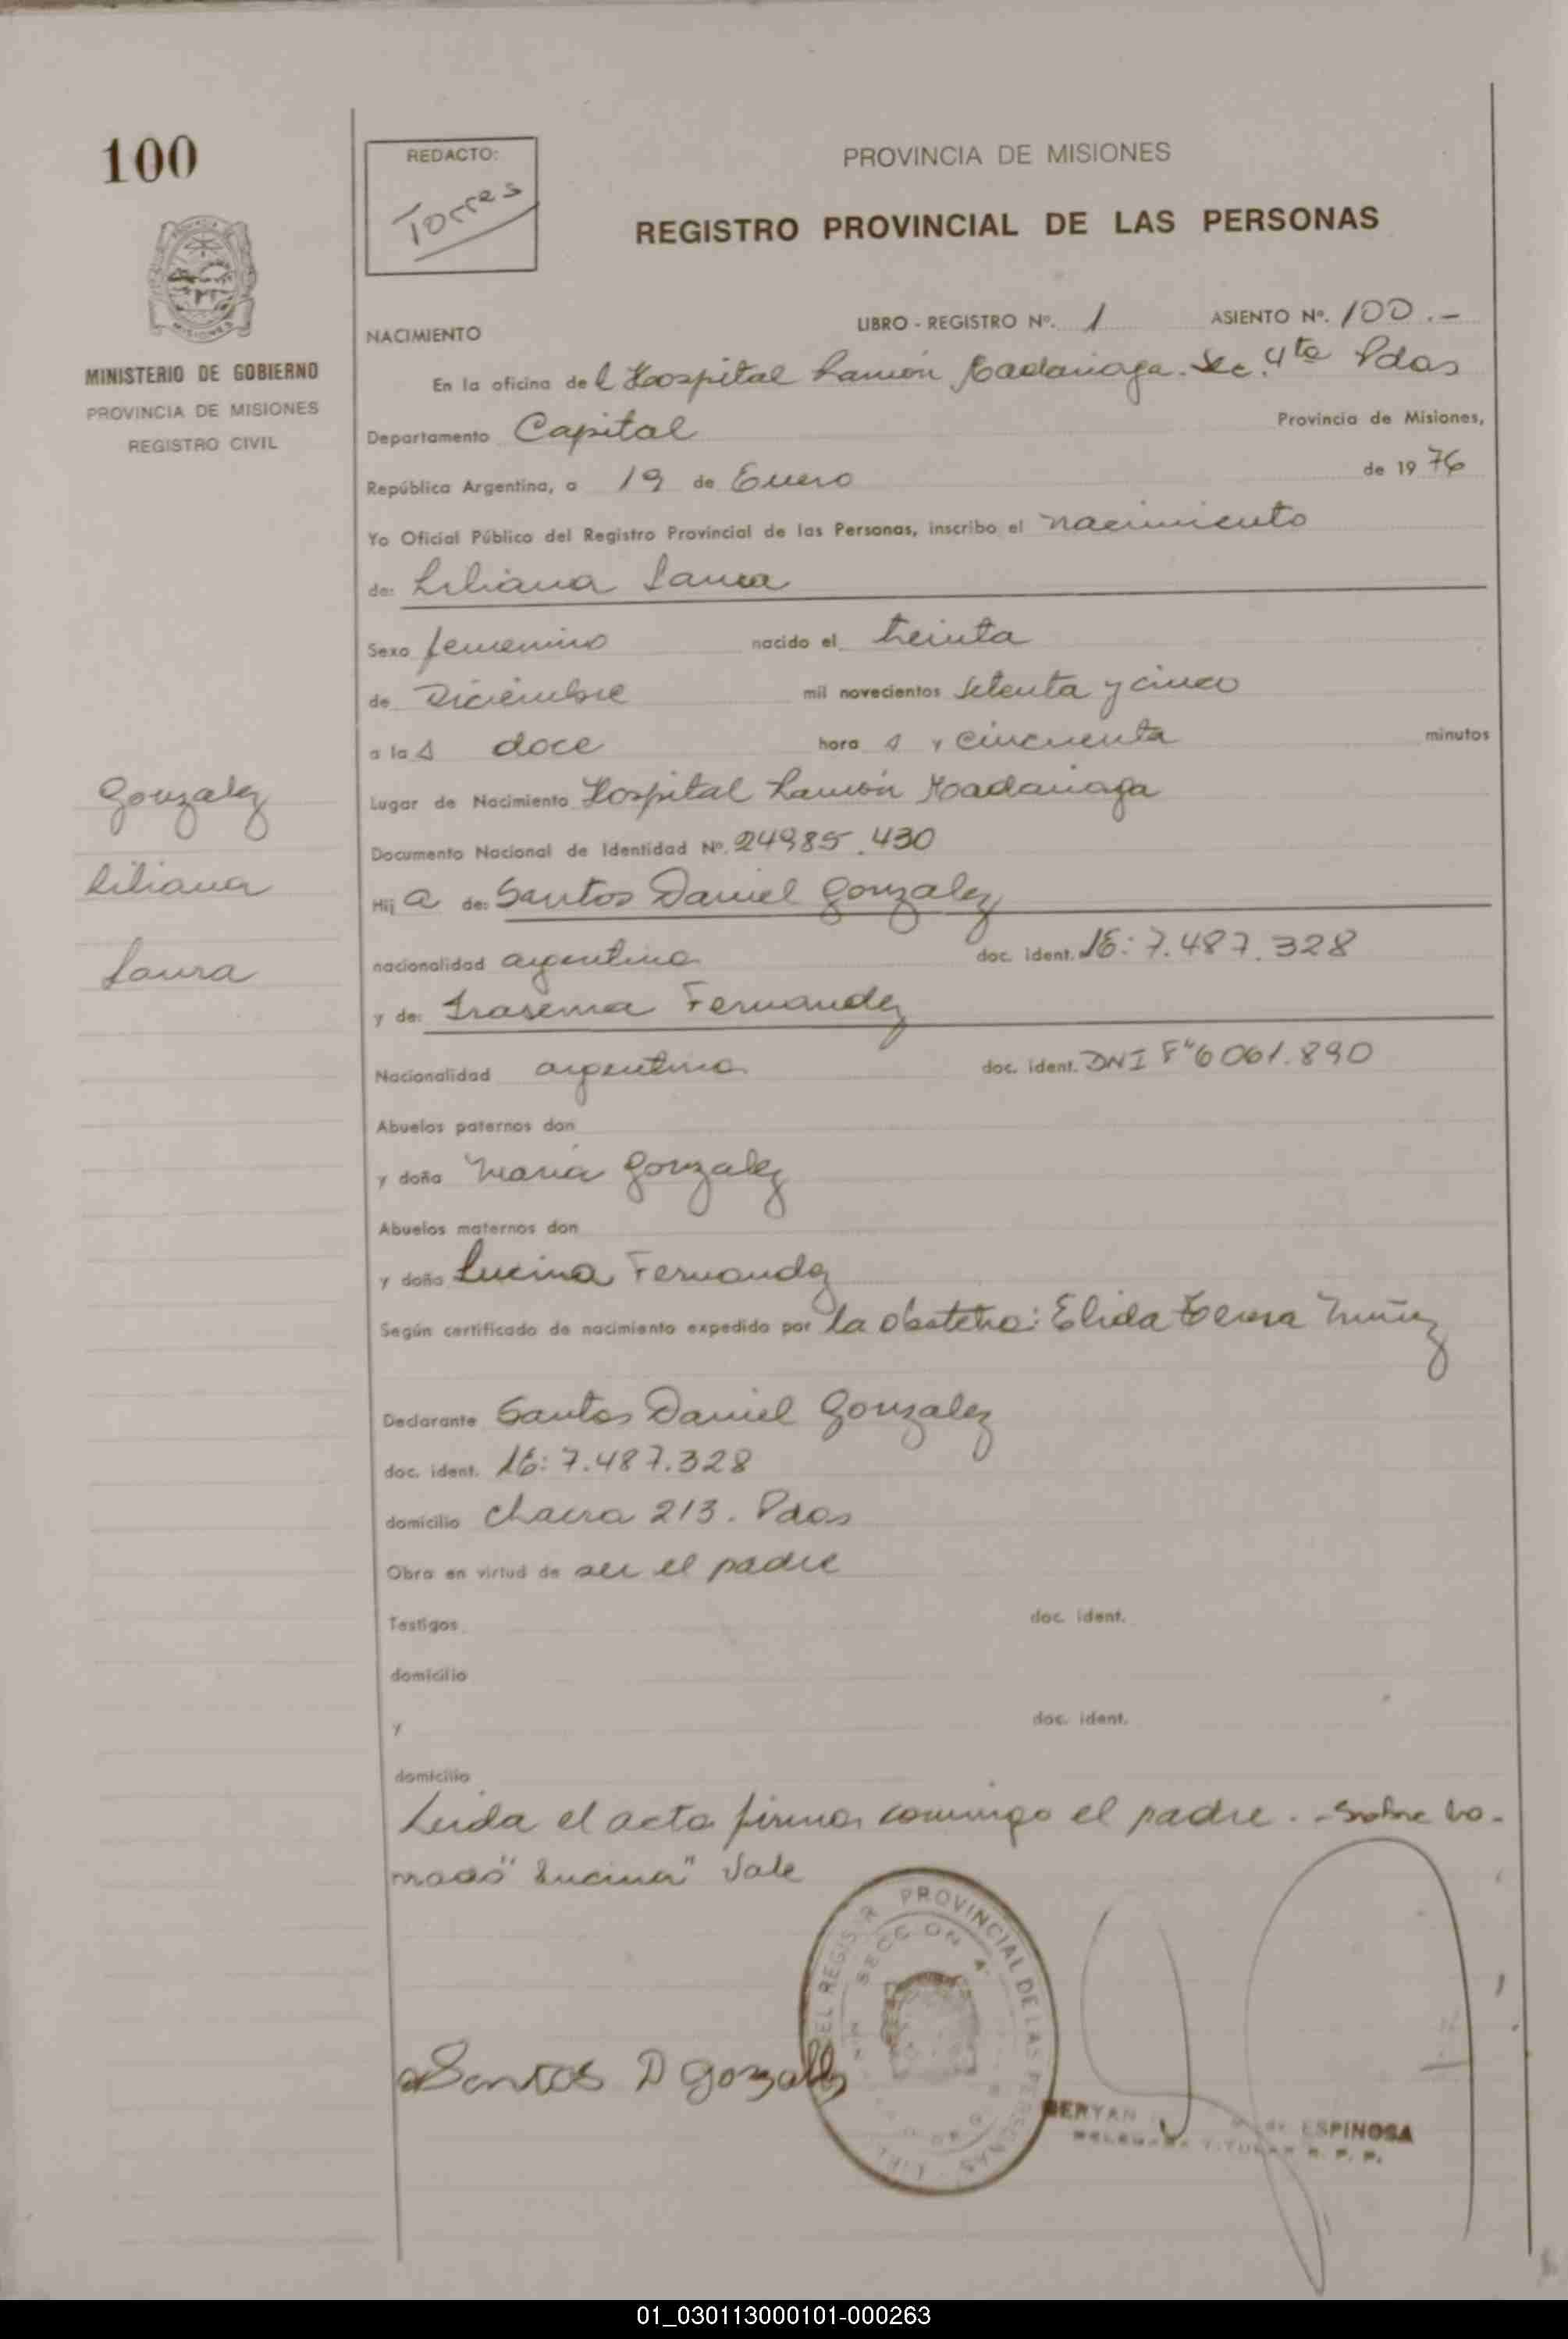 100
REDACTO:
Torres
PROVINCIA DE MISIONES
REGISTRO PROVINCIAL DE LAS PERSONAS
MISIONES
MINISTERIO DE GOBIERNO
PROVINCIA DE MISIONES
REGISTRO CIVIL
NACIMIENTO
LIBRO - REGISTRO Nº. 1 ASIENTO Nº. 100.-
En la oficina del Hospital Ramón Madariaga. Sec. 4ta Pdas
Departamento Capital Provincia de Misiones,
República Argentina, a 19 de Enero de 1976
Yo Oficial Público del Registro Provincial de las Personas, inscribo el nacimiento
de: Liliana Laura
Sexo femenino nacido el treinta
de Diciembre mil novecientos setenta y cinco
a las doce hora s y cincuenta minutos
Lugar de Nacimiento Hospital Ramón Madariaga
Documento Nacional de Identidad Nº. 24985.430
Hija de: Santos Daniel Gonzalez
nacionalidad argentina doc. ident. 7.487.328
y de: Irasema Fernandez
Nacionalidad argentina doc. ident. DNI F" 6061.890
Abuelos paternos don
y doña Maria Gonzalez
Abuelos maternos don
y doña Lucina Fernandez
Según certificado de nacimiento expedido por la obstetra: Elida Muñiz
Declarante Santos Daniel Gonzalez
doc. ident. 7.487.328
domicilio Chacra 213. Pdas
Obra en virtud de ser el padre
Testigos doc. ident.
domicilio
y doc. ident.
domicilio
Leida el acta firma conmigo el padre. - Sobre bo-
rrado "Lucina" Vale
Gonzalez
Liliana
Laura
Santos D Gonzalez
PROVINCIAL DE LAS PERSONAS
SECCION 4
ESPINOSA
TITULAR R. P. P.
01_030113000101-000263